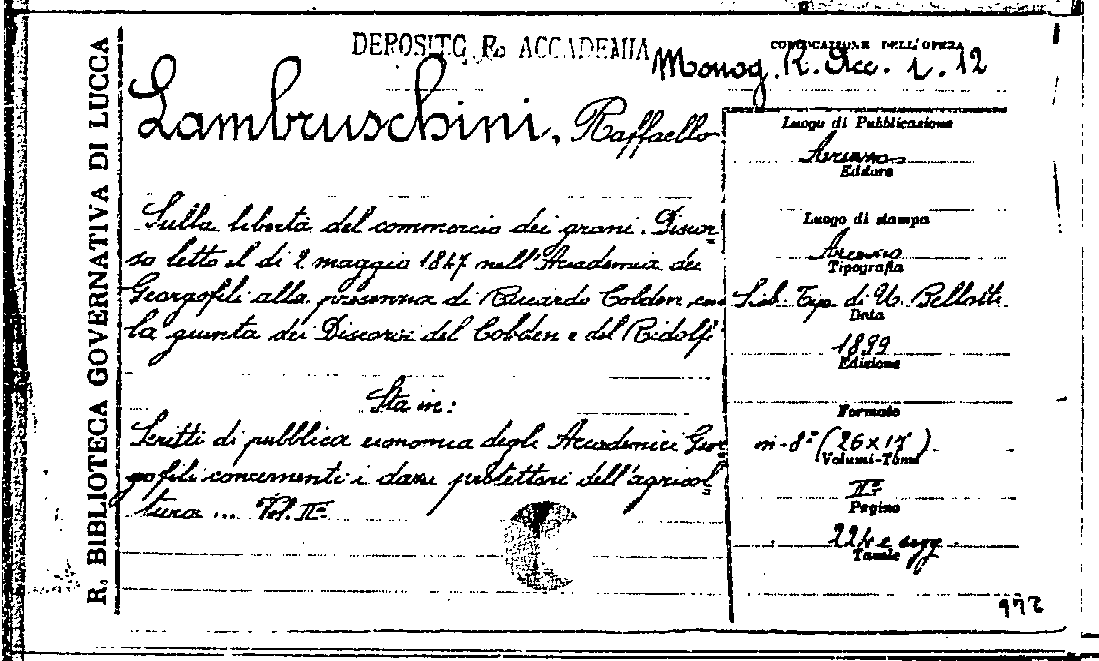 DEPOSITO R. ACCADEMIA
COLLOCAZIONE DELL'OPERA
Monog. R. Acc. 1. 12
R. BIBLIOTECA GOVERNATIVA DI LUCCA
Lambruschini, Raffaello
Sulla libertà del commercio dei grani. Discor=
so letto il dì 2 maggio 1847 nell'Accademia dei
Georgofili alla presenza di Riccardo Cobden, con
la giunta dei Discorsi del Cobden e del Ridolfi
Sta in:
Scritti di pubblica economia degli Accademici Geor
gofili concernenti i dazi protettori dell'agricol=
tura ... Vol. II°
Luogo di Pubblicazione
Arezzo
Editore
Luogo di stampa
Arezzo
Tipografia
Stab. Tip. di U. Bellotti
Data
1899
Edizione
Formato
in-8° (26x17)
Volumi-Tomi
II°
Pagine
224 e segg
Tavole